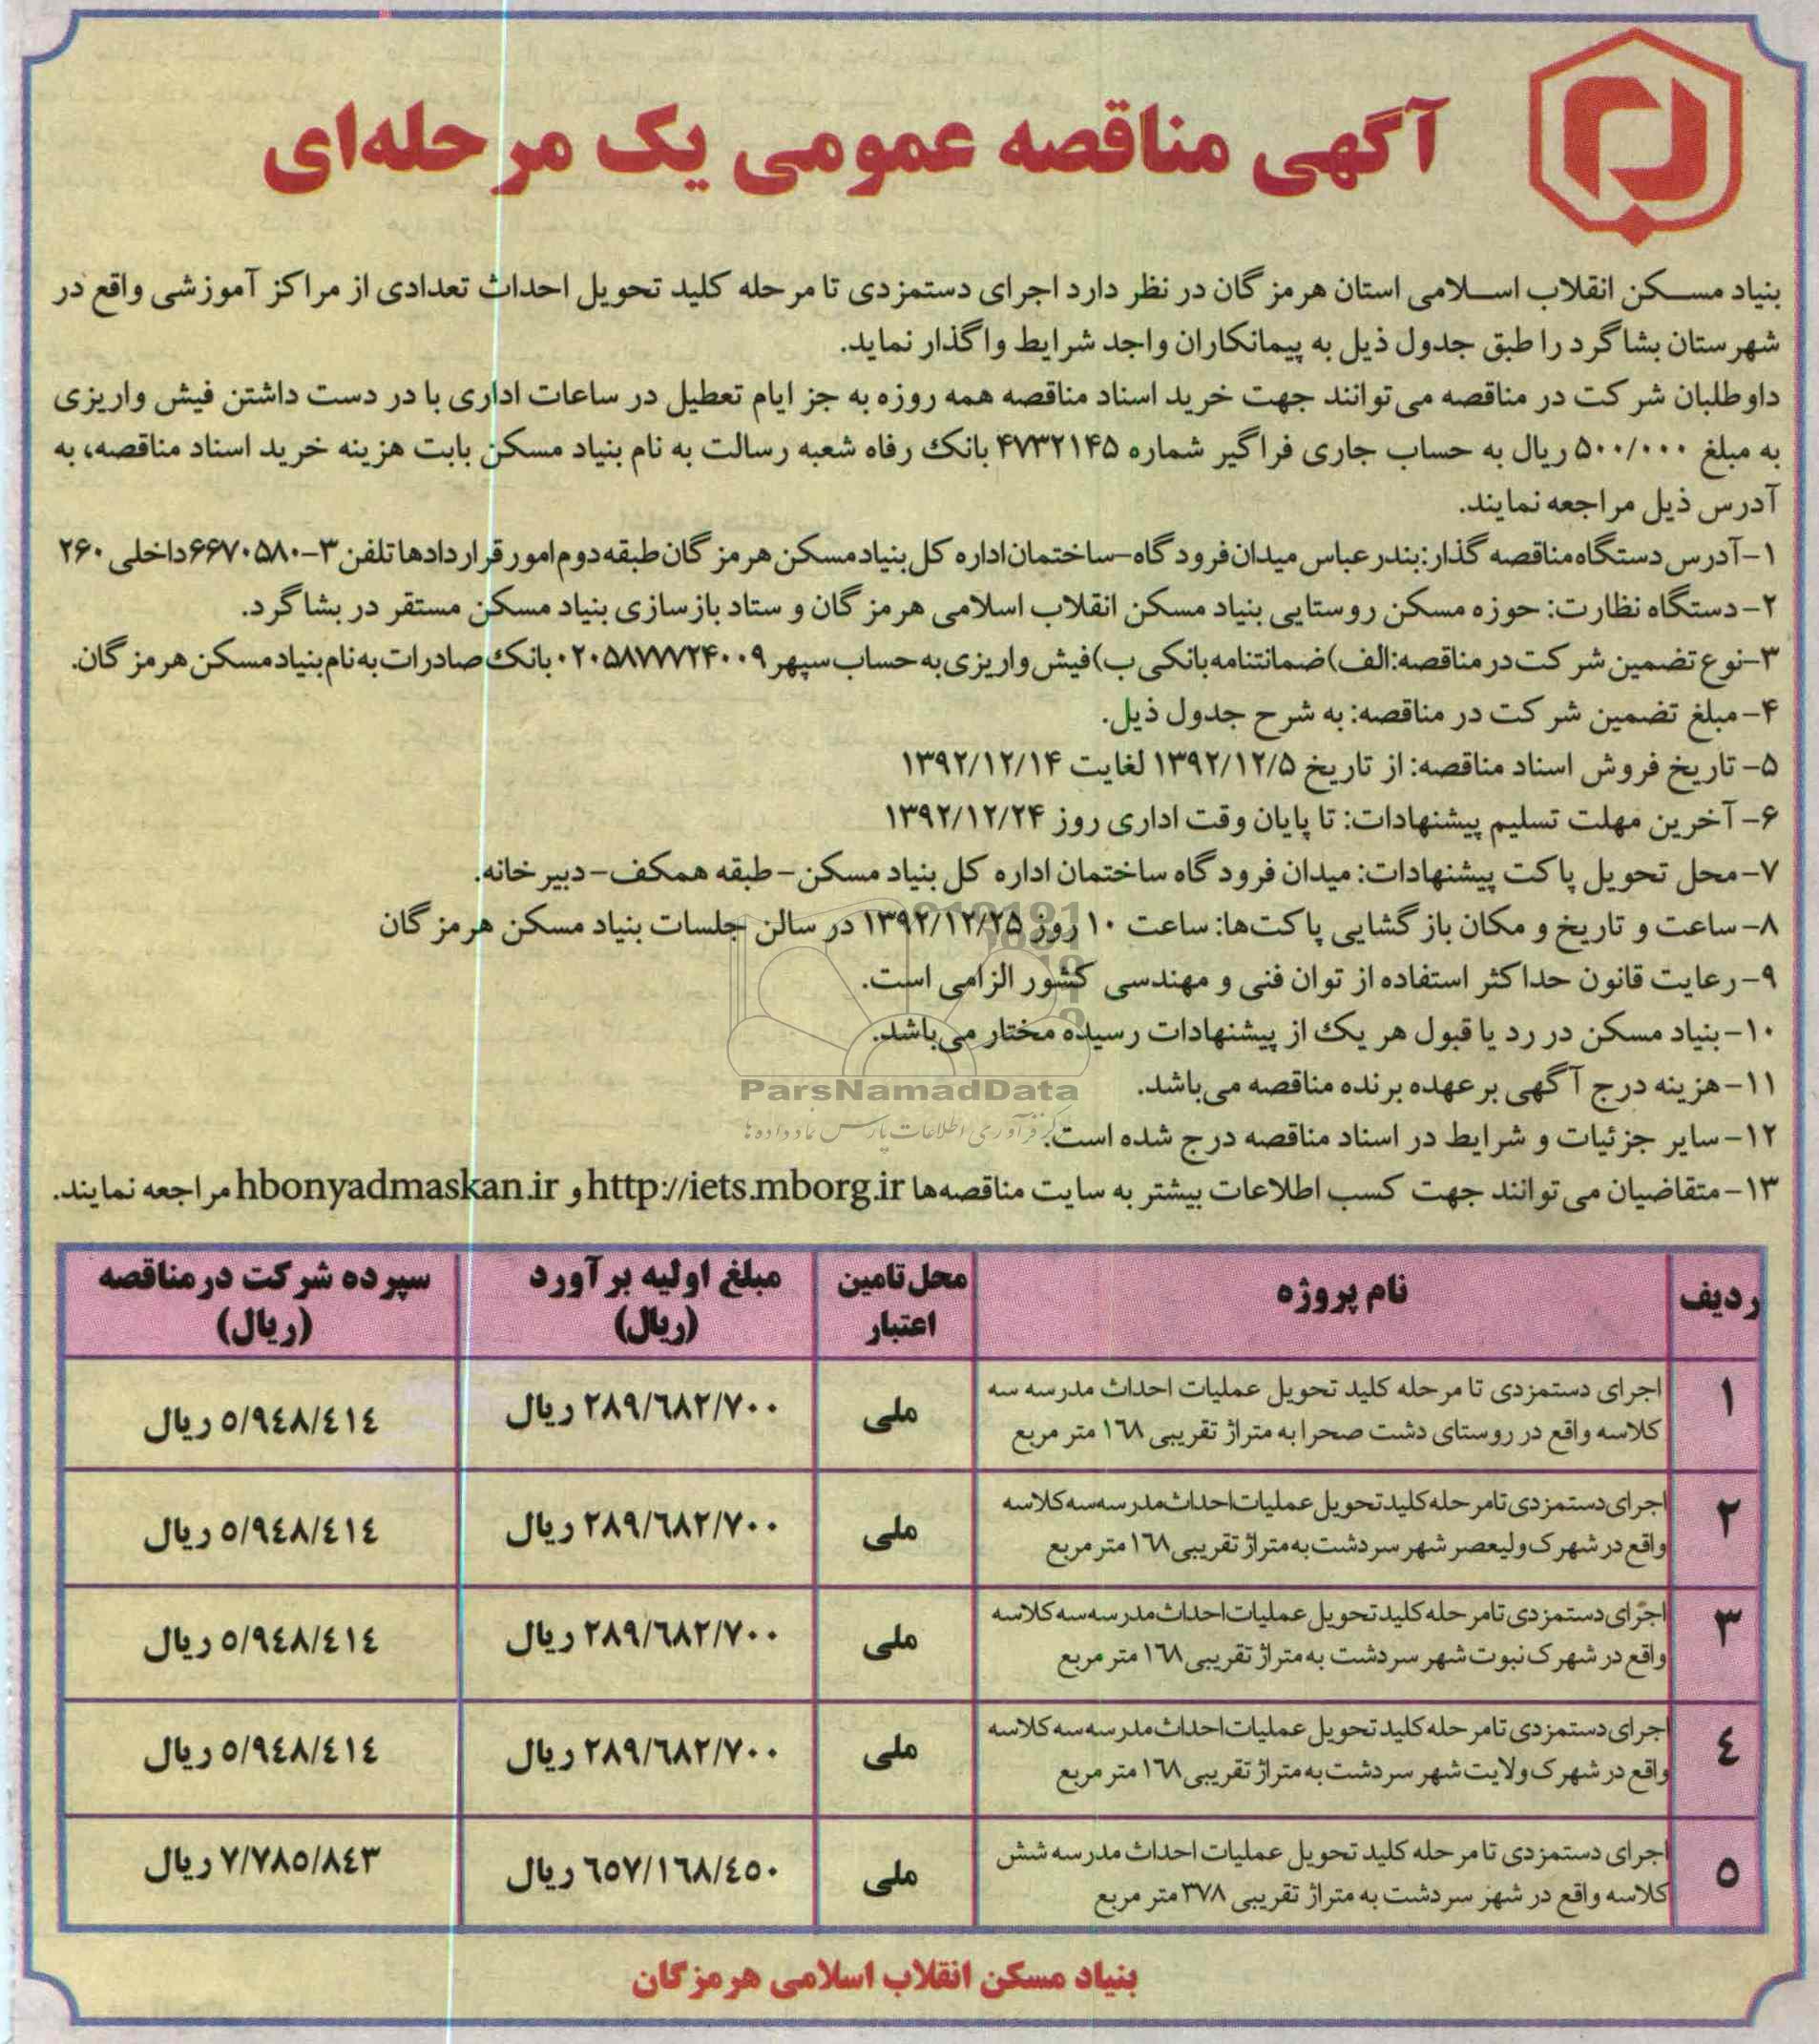 آگهی مناقصه عمومی یک مرحله‌ای
بنیاد مسکن انقلاب اسلامی استان هرمزگان در نظر دارد اجرای دستمزدی تا مرحله کلید تحویل احداث تعدادی از مراکز آموزشی واقع در
شهرستان بشاگرد را طبق جدول ذیل به پیمانکاران واجد شرایط واگذار نماید.
داوطلبان شرکت در مناقصه می‌توانند جهت خرید اسناد مناقصه همه روزه به جز ایام تعطیل در ساعات اداری با در دست داشتن فیش واریزی
به مبلغ ۵۰۰/۰۰۰ ریال به حساب جاری فراگیر شماره ۴۷۳۲۱۴۵ بانک رفاه شعبه رسالت به نام بنیاد مسکن بابت هزینه خرید اسناد مناقصه، به
آدرس ذیل مراجعه نمایند.
۱-آدرس دستگاه مناقصه گذار: بندرعباس میدان فرودگاه-ساختمان اداره کل بنیاد مسکن هرمزگان طبقه دوم امور قراردادها تلفن ۳-۶۶۷۰۵۸۰ داخلی ۲۶۰
۲- دستگاه نظارت: حوزه مسکن روستایی بنیاد مسکن انقلاب اسلامی هرمزگان و ستاد بازسازی بنیاد مسکن مستقر در بشاگرد.
۳-نوع تضمین شرکت در مناقصه: الف) ضمانتنامه بانکی ب) فیش واریزی به حساب سپهر ۰۲۰۵۸۷۷۷۲۴۰۰۹ بانک صادرات به نام بنیاد مسکن هرمزگان.
۴- مبلغ تضمین شرکت در مناقصه: به شرح جدول ذیل.
۵- تاریخ فروش اسناد مناقصه: از تاریخ ۱۳۹۲/۱۲/۵ لغایت ۱۳۹۲/۱۲/۱۴
۶- آخرین مهلت تسلیم پیشنهادات: تا پایان وقت اداری روز ۱۳۹۲/۱۲/۲۴
۷- محل تحویل پاکت پیشنهادات: میدان فرودگاه ساختمان اداره کل بنیاد مسکن- طبقه همکف- دبیرخانه.
۸- ساعت و تاریخ و مکان بازگشایی پاکت‌ها: ساعت ۱۰ روز ۱۳۹۲/۱۲/۲۵ در سالن جلسات بنیاد مسکن هرمزگان
۹- رعایت قانون حداکثر استفاده از توان فنی و مهندسی کشور الزامی است.
۱۰- بنیاد مسکن در رد یا قبول هر یک از پیشنهادات رسیده مختار می‌باشد.
۱۱- هزینه درج آگهی بر عهده برنده مناقصه می‌باشد.
ParsNamadData
۱۲- سایر جزئیات و شرایط در اسناد مناقصه درج شده است.
۱۳- متقاضیان می‌توانند جهت کسب اطلاعات بیشتر به سایت مناقصه‌ها http://iets.mborg.ir و hbonyadmaskan.ir مراجعه نمایند.
ردیف نام پروژه محل تامین اعتبار مبلغ اولیه برآورد (ریال) سپرده شرکت در مناقصه (ریال)
۱ اجرای دستمزدی تا مرحله کلید تحویل عملیات احداث مدرسه سه
کلاسه واقع در روستای دشت صحرا به متراژ تقریبی ۱٦۸ متر مربع ملی ۲۸۹/٦۸۲/۷۰۰ ریال ٥/۹٤۸/٤۱٤ ریال
۲ اجرای دستمزدی تا مرحله کلید تحویل عملیات احداث مدرسه سه کلاسه
واقع در شهرک ولیعصر شهر سردشت به متراژ تقریبی ۱٦۸ متر مربع ملی ۲۸۹/٦۸۲/۷۰۰ ریال ٥/۹٤۸/٤۱٤ ریال
۳ اجرای دستمزدی تا مرحله کلید تحویل عملیات احداث مدرسه سه کلاسه
واقع در شهرک نبوت شهر سردشت به متراژ تقریبی ۱٦۸ متر مربع ملی ۲۸۹/٦۸۲/۷۰۰ ریال ٥/۹٤۸/٤۱٤ ریال
٤ اجرای دستمزدی تا مرحله کلید تحویل عملیات احداث مدرسه سه کلاسه
واقع در شهرک ولایت شهر سردشت به متراژ تقریبی ۱٦۸ متر مربع ملی ۲۸۹/٦۸۲/۷۰۰ ریال ٥/۹٤۸/٤۱٤ ریال
٥ اجرای دستمزدی تا مرحله کلید تحویل عملیات احداث مدرسه شش
کلاسه واقع در شهر سردشت به متراژ تقریبی ۳۷۸ متر مربع ملی ٦٥۷/۱٦۸/٤٥۰ ریال ۷/۷۸٥/۸٤۳ ریال
بنیاد مسکن انقلاب اسلامی هرمزگان